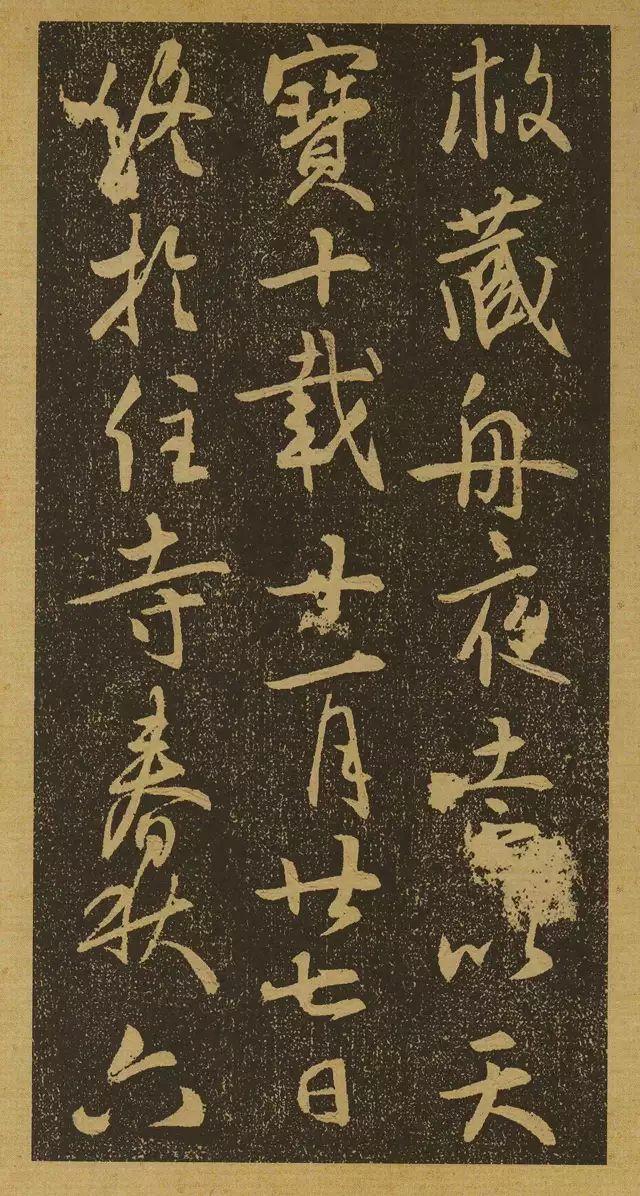 救藏舟夜以天
寶十載一月廿七日
終於住寺春秋六